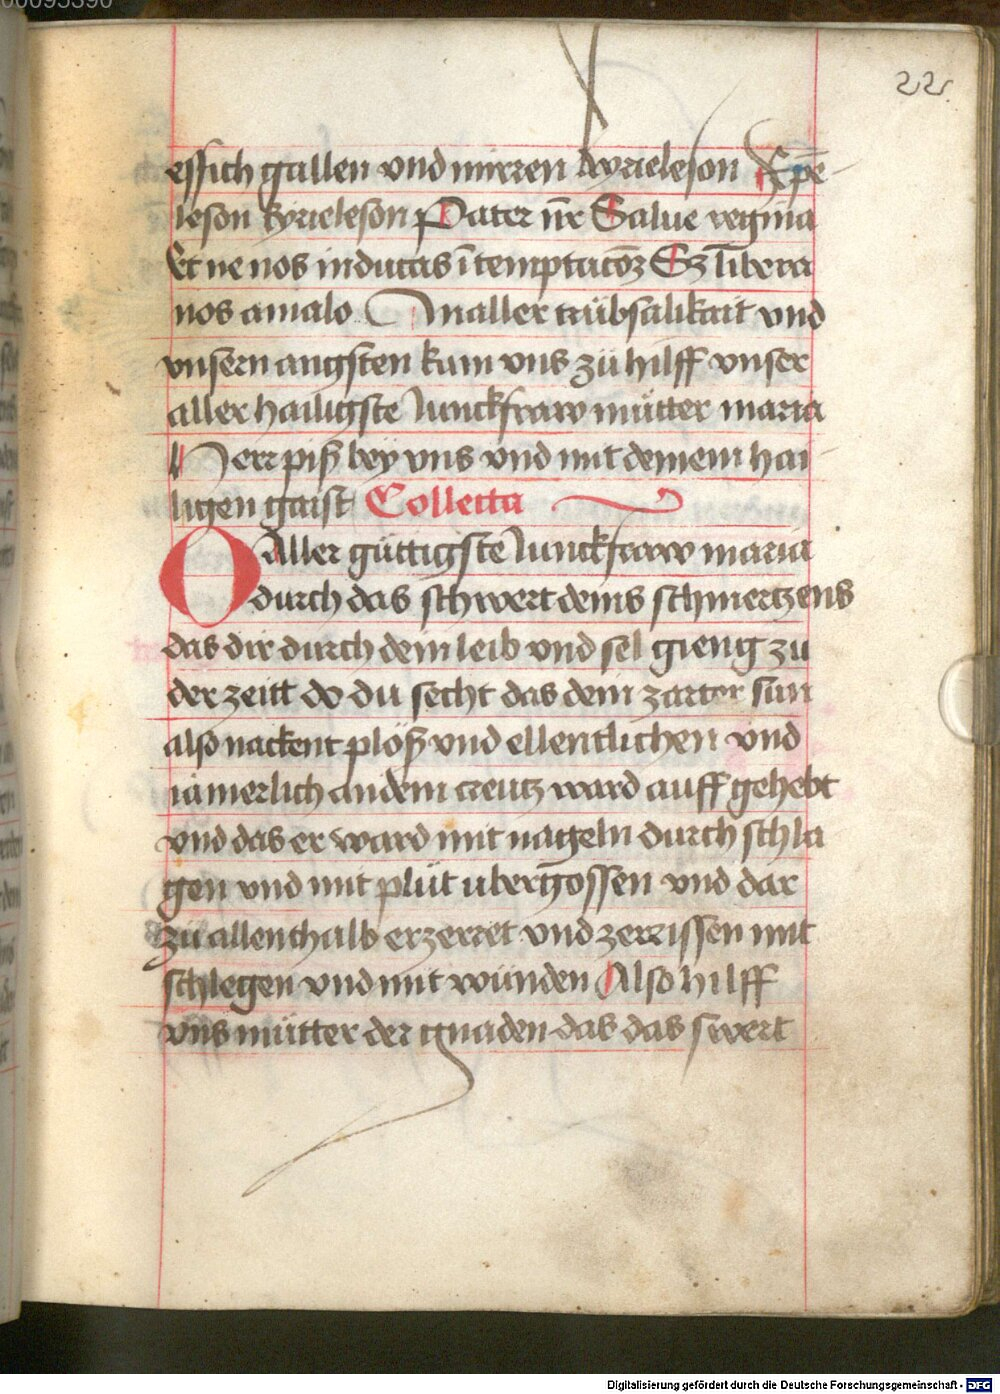 22.
essich gallen vnd mirren kyrieleson Xp̄e
leson kyrieleson Pater nr̄ Salue regina
Et ne nos inducas ī temptacōȝ Sȝ libera
nos a malo In aller trübsalikait vnd
vnsern angsten kum vns zü hilff vnser
aller hailigste Junckfraw mütter maria
Herr piß bey vns vnd mit deinem hai
ligen gaist Collecta
O Aller güttigste Junckfraw maria
durch das schwert deins schmertzens
das dir durch dein leib vnd sel gieng zu
der zeitt do du secht das dein zarter sun
also nackent plöß vnd ellentlichen vnd
iamerlich an dem creutz ward auff gehebt
vnd das er ward mit nageln durch schla
gen vnd mit plüt übergossen vnd dar
zü allenthalb erzerret vnd zerrissen mit
schlegen vnd mit wünden Also hilff
vns mütter der gnaden das das swert
Digitalisierung gefördert durch die Deutsche Forschungsgemeinschaft - DFG